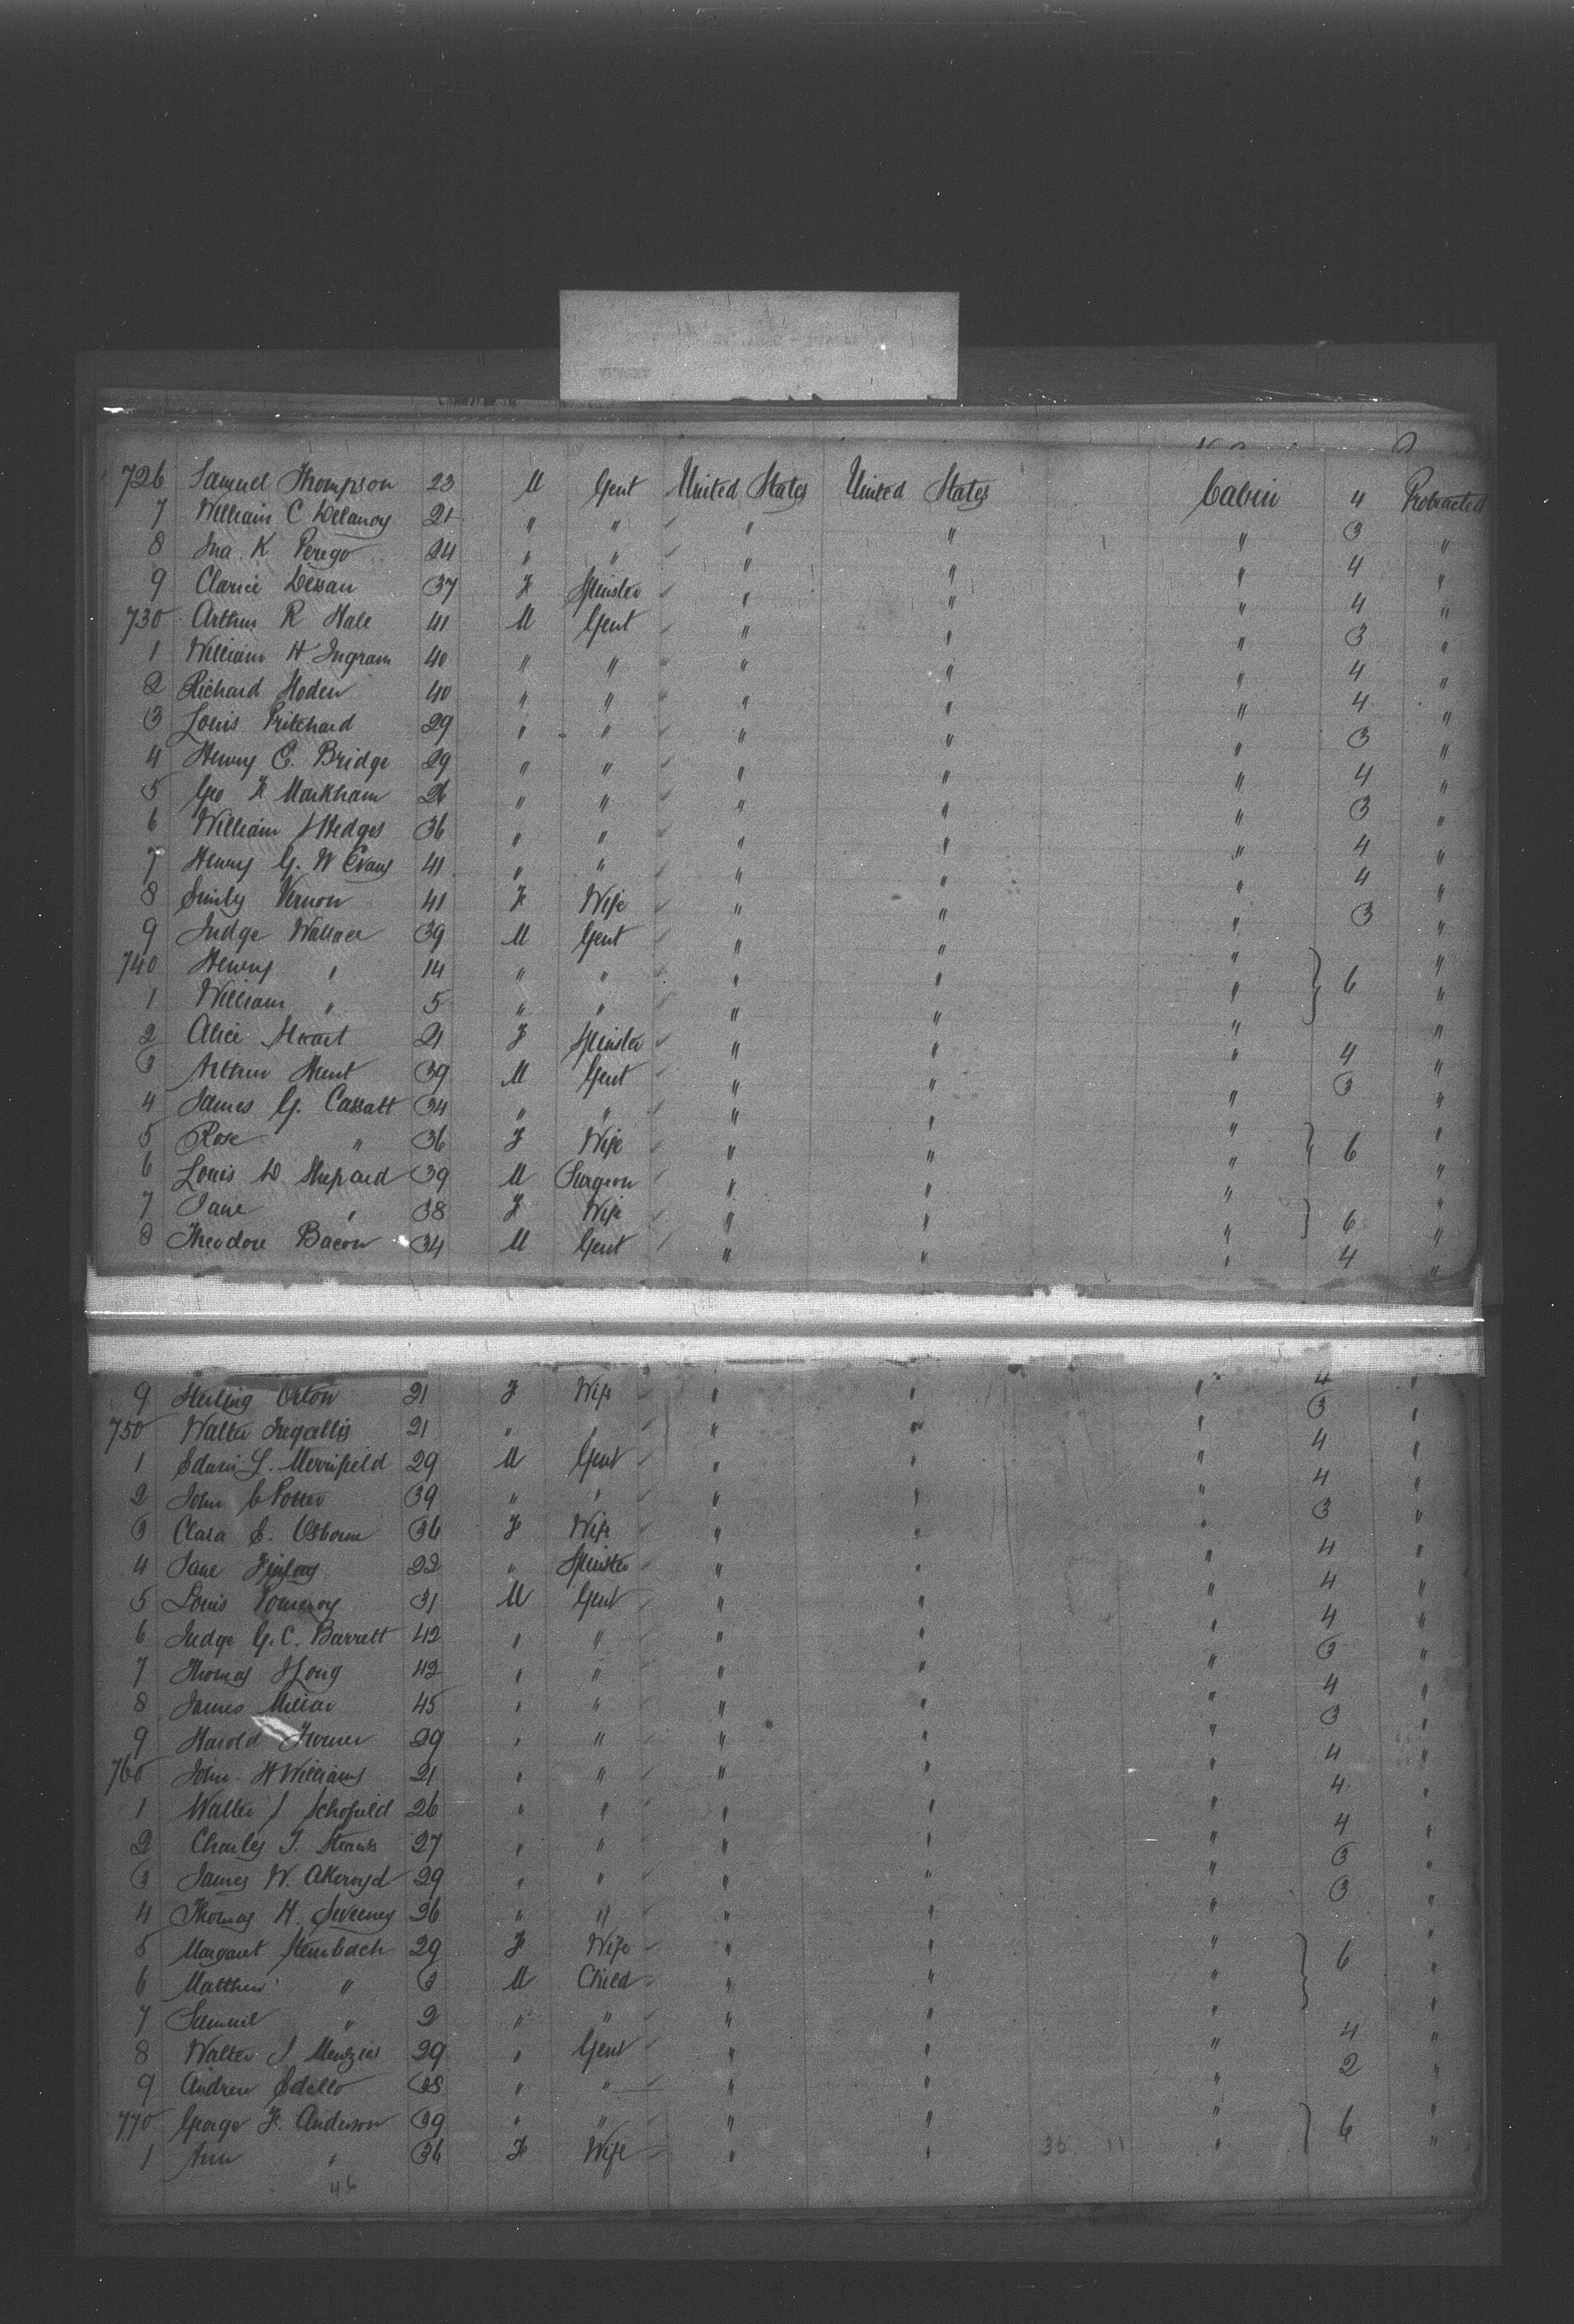 726 Samuel Thompson 23 M Gent United States United States Cabin 4 Protracted
7 William C Delanoy 21 " " " " " 3 "
8 Ina K Perego 24 " " " " " 4 "
9 Clarice Dessau 37 F Spinster " " " 4 "
730 Arthur R Hale 41 M Gent " " " 3 "
1 William H Ingram 40 " " " " " 4 "
2 Richard Hoden 40 " " " " " 4 "
3 Louis Pritchard 29 " " " " " 3 "
4 Henry E. Bridge 29 " " " " " 4 "
5 Geo F Markham 26 " " " " " 3 "
6 William J Hedges 36 " " " " " 4 "
7 Henry G. W Evans 41 " " " " " 4 "
8 Emily Vernon 41 F Wife " " " 3 "
9 Judge Wallace 39 M Gent " " " "
740 Henry " 14 " " " " " 6 "
1 William " 5 " " " " " "
2 Alice Stewart 21 F Spinster " " " 4 "
3 Arthur Hunt 39 M Gent " " " 3 "
4 James G. Cassatt 34 " " " " " "
5 Rose " 36 F Wife " " " 6 "
6 Louis D Shepard 39 M Surgeon " " " "
7 Jane " 38 F Wife " " " 6 "
8 Theodore Bacon 34 M Gent " " " 4 "
9 Sterling Orton 21 F Wife " " " 4 "
750 Walter 21 " " " " 3 "
1 Edwin L. Merrifield 29 M Gent " " " 4 "
2 John C Potter 39 " " " " " 4 "
3 Clara E. Osborne 36 F Wife " " " 3 "
4 Jane Finlay 22 " Spinster " " " 4 "
5 Louis Pomeroy 31 M Gent " " " 4 "
6 Judge G. C. Barrett 42 " " " " " 4 "
7 Thomas J Long 42 " " " " " 3 "
8 James Millar 45 " " " " " 4 "
9 Harold Turner 29 " " " " " 3 "
760 John H Williams 21 " " " " " 4 "
1 Walter J Schofield 26 " " " " " 4 "
2 Charles T. Straus 27 " " " " " 4 "
3 James W. Akeroyd 29 " " " " " 3 "
4 Thomas H. Sweeney 36 " " " " " 3 "
5 Margaret Steinbach 29 F Wife " " " "
6 Matthew " 3 M Child " " " 6 "
7 Samuel " 2 " " " " " "
8 Walter J Menzies 29 " Gent " " " 4 "
9 Andrew Edello 38 " " " " " 2 "
770 George F. Anderson 39 " " " " " "
1 Ann " 36 F Wife " " 36 11 " 6 "
46